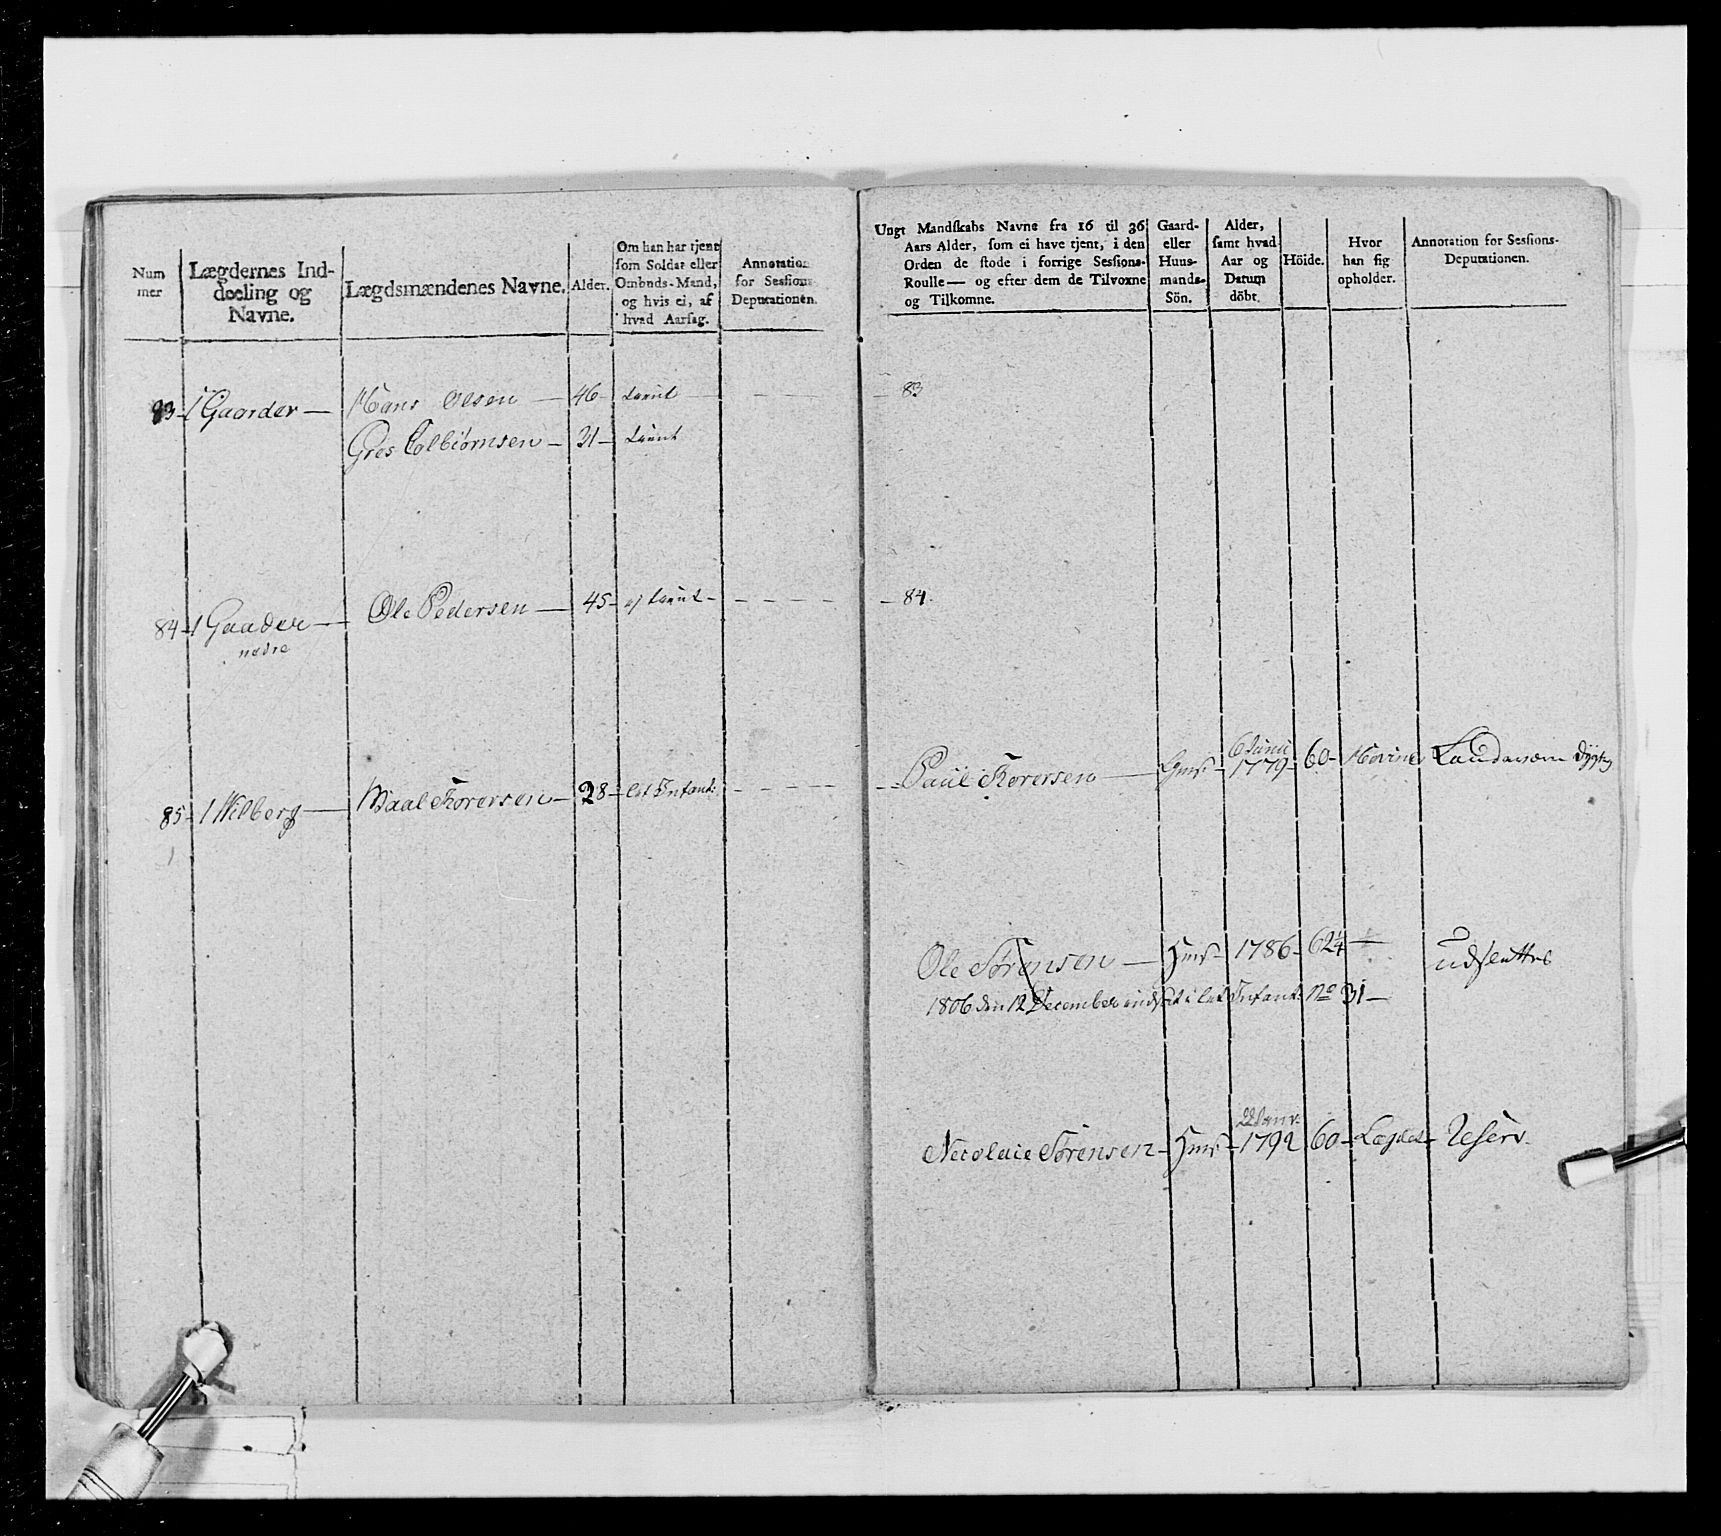 Num
mer
Lægdernes Ind-
deeling og
Navne.
Lægdsmændenes Navne.
Alder.
Om han har tjent
som Soldat eller
Ombuds-Mand,
og hvis ei, af
hvad Aarsag.
Annotation
for Sessions-
Deputationen.
83 - 1 Gaarder — Hans Olsen — 46 - tient
Gres Colbiørnsen - 21 - tient
84 - 1 Gaader — Ole Pedersen — 45 - ej tient -
nedre
85 - 1 Wilberg — Paal Torersen - 28 - let Infant:
Ungt Mandskabs Navne fra 16 til 36
Aars Alder, som ei have tjent, i den
Orden de stode i forrige Sessions-
Roulle — og efter dem de Tilvoxne
og Tilkomne.
Gaard-
eller
Huus-
mands-
Sön.
Alder,
samt hvad
Aar og
Datum
döbt.
Höide.
Hvor
han sig
opholder.
Annotation for Sessions-
Deputationen.
83
84.
6 Juni
Paul Torersen — Gms - 1779 - 60 - Hovind Landværn Dygtig
Ole Sørensen — Hms - 1786 - 62¼ — udsettes
1806 den 12 December indsat i let Infant: No 31 —
Nicolaie Sørensen - Hms - 1792 60 - Lægdet - Reserv.